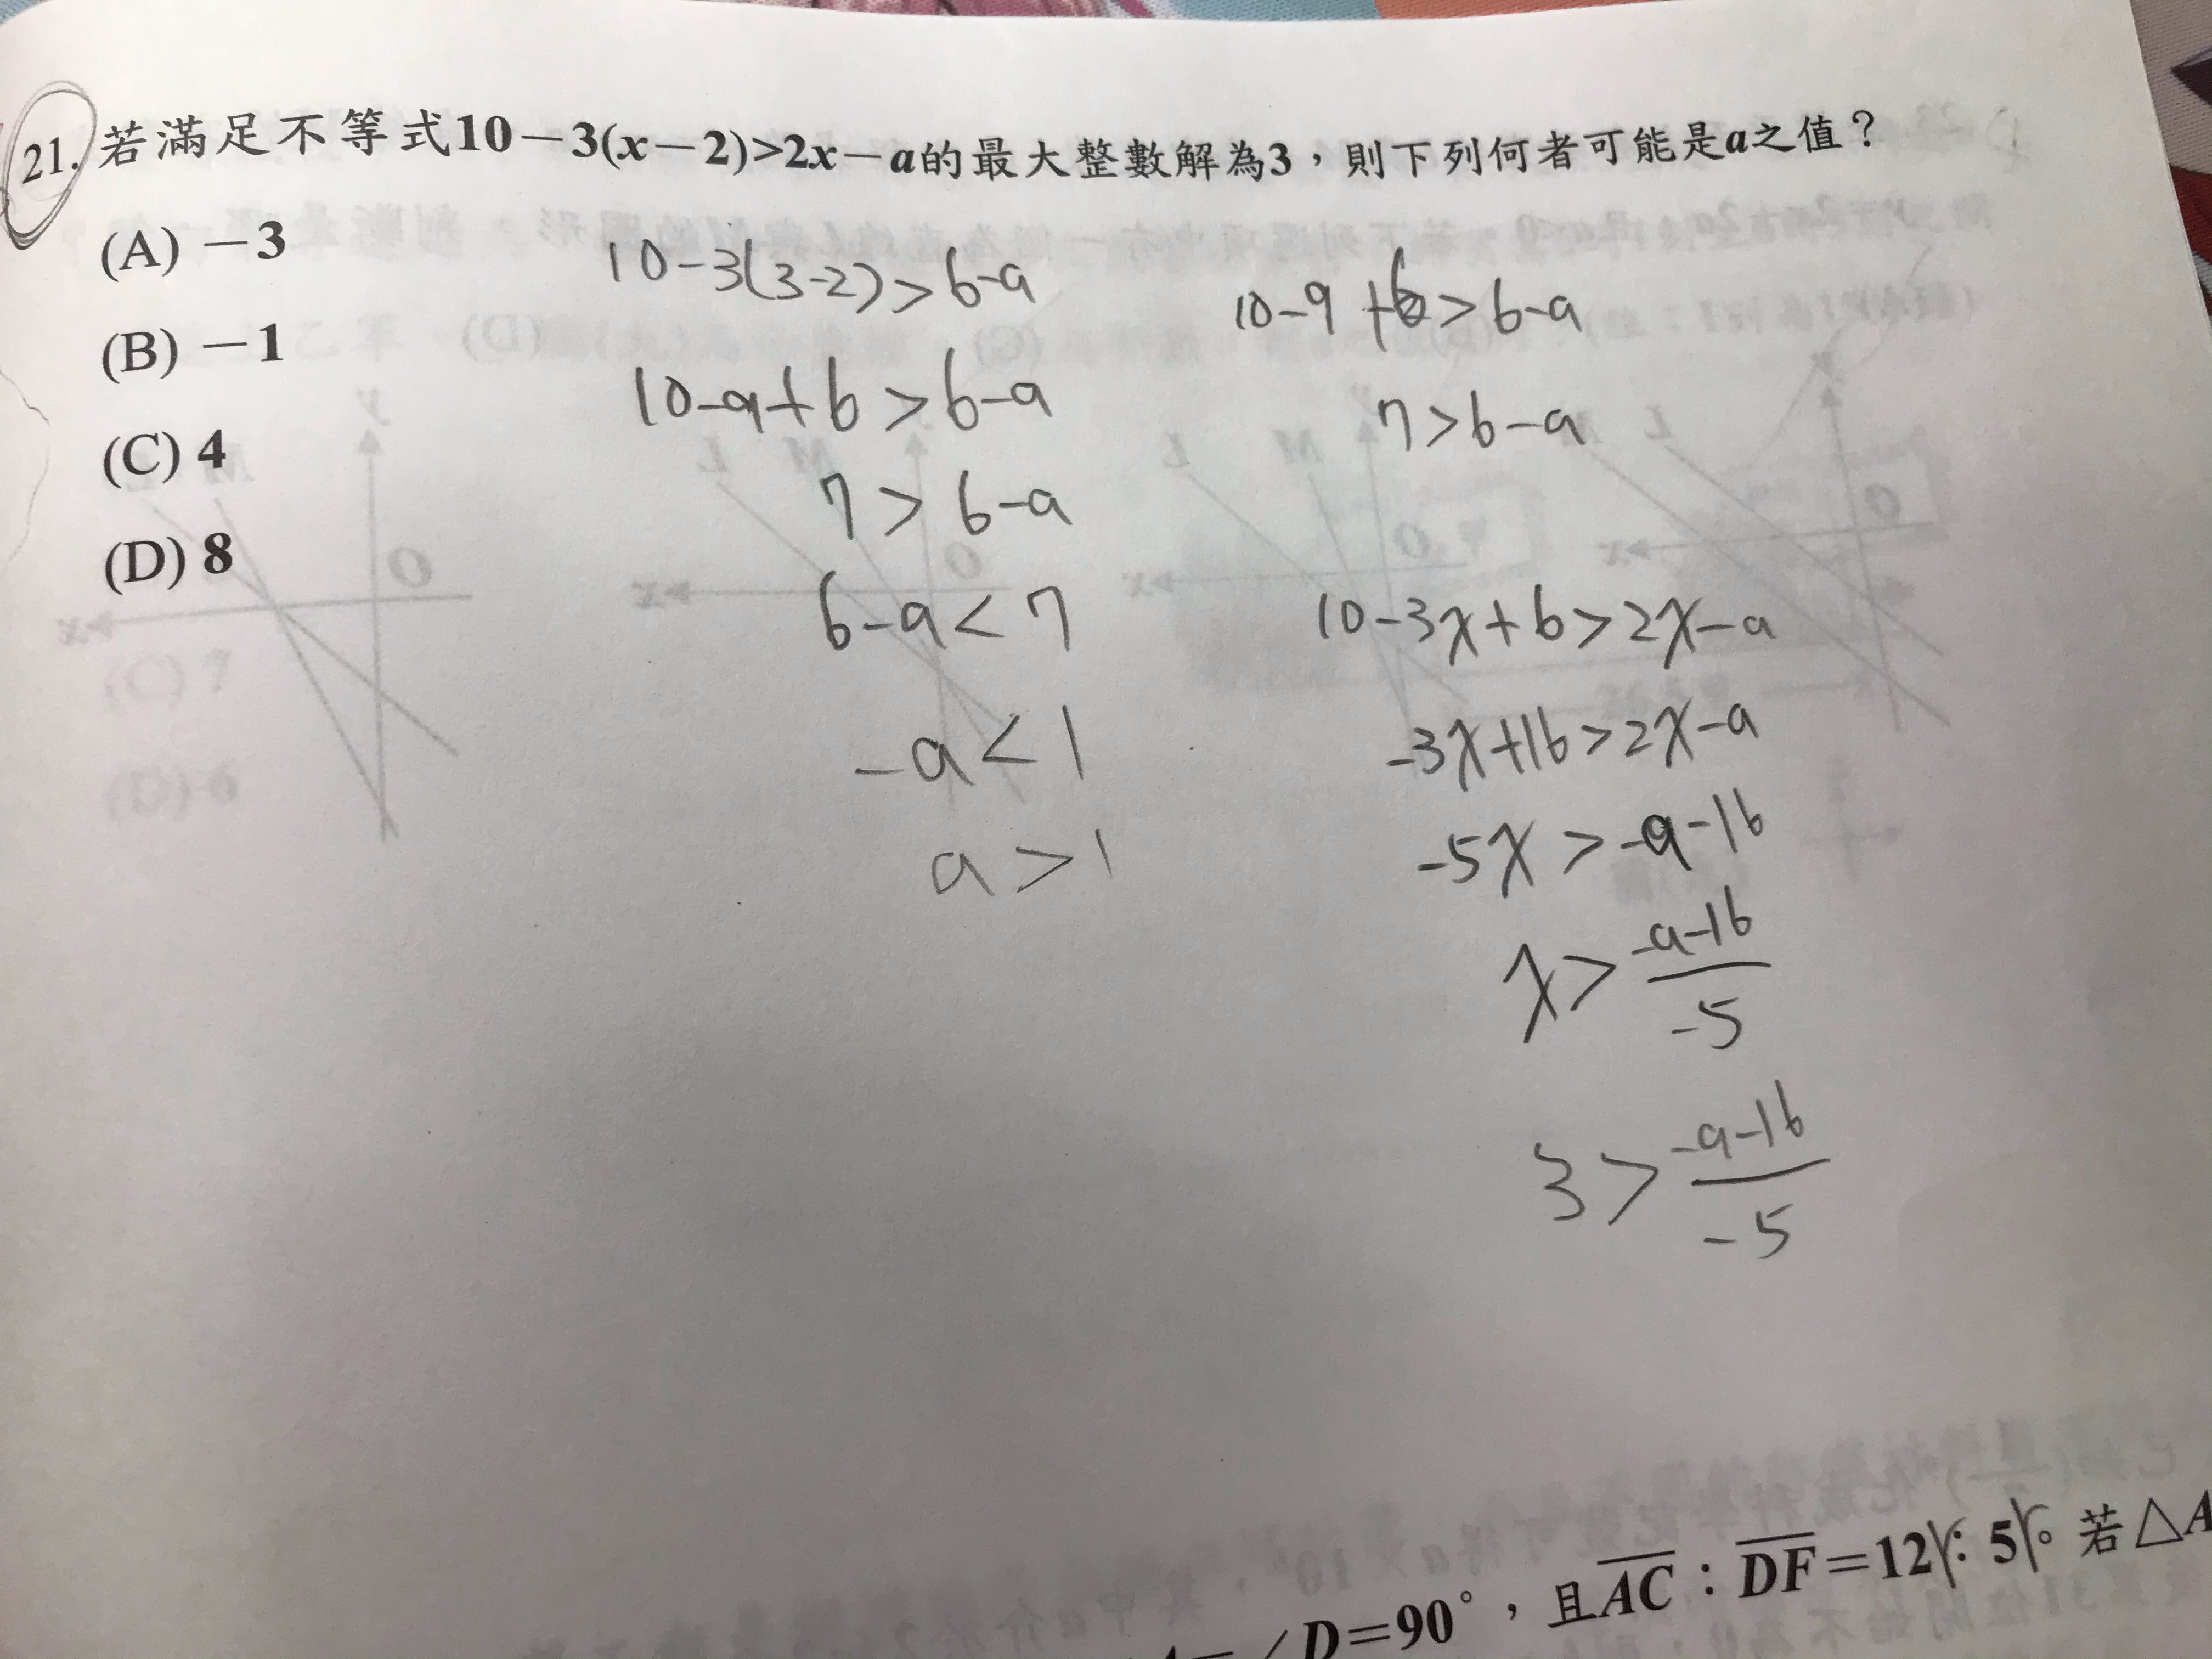 21. 若滿足不等式10－3(x－2)>2x－a的最大整數解為3，則下列何者可能是a之值？
(A) －3
(B) －1
(C) 4
(D) 8
10-3(3-2)>6-a
10-9+6>6-a
7>6-a
6-a<7
-a<1
a>1
10-9+6>6-a
7>6-a
10-3x+6>2x-a
-3x+16>2x-a
-5x>-a-16
x>\frac{-a-16}{-5}
3>\frac{-a-16}{-5}
∠D=90°，且AC：DF=12：5。若△A